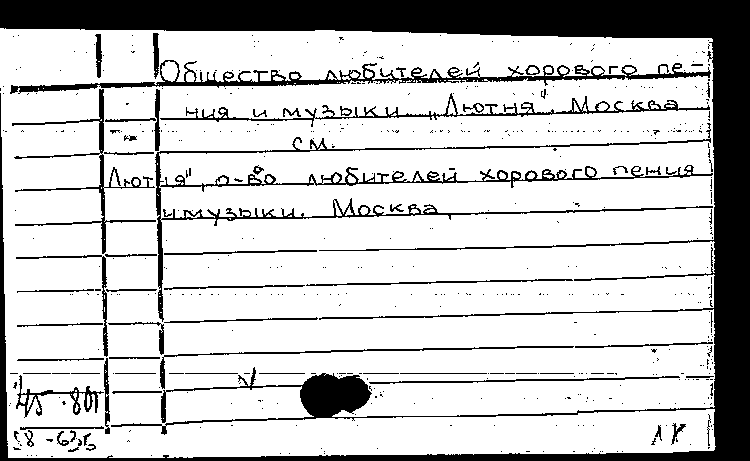 Общество любителей хорового пе-
ния и музыки „Лютня". Москва
см.
Лютня", о-во любителей хорового пения
и музыки. Москва.
58-635